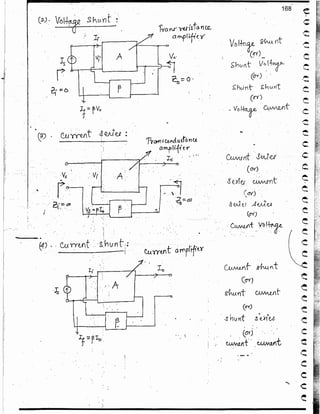 168
(2). Voltage Shunt :
Transresistance
amplifier
If
Is
Vi
A
Vo
Zi = 0
Zo = 0.
β
If = βVo
Voltage Shunt
(or)
Shunt Voltage
(or)
Shunt Shunt
(or)
. Voltage Current
(3) . Current series :
Transconductance
amplifier
Io
Vs
Vi
A
Zi = ∞
Zo = ∞
Vf = βIo
β
Current Series
(or)
Series current
(or)
Series Series
(or)
Current Voltage
(4) . Current shunt :
Current amplifier
If
Io
Is
A
β
If = βIo
Current shunt
(or)
Shunt Current
(or)
Shunt Series
(or)
current current